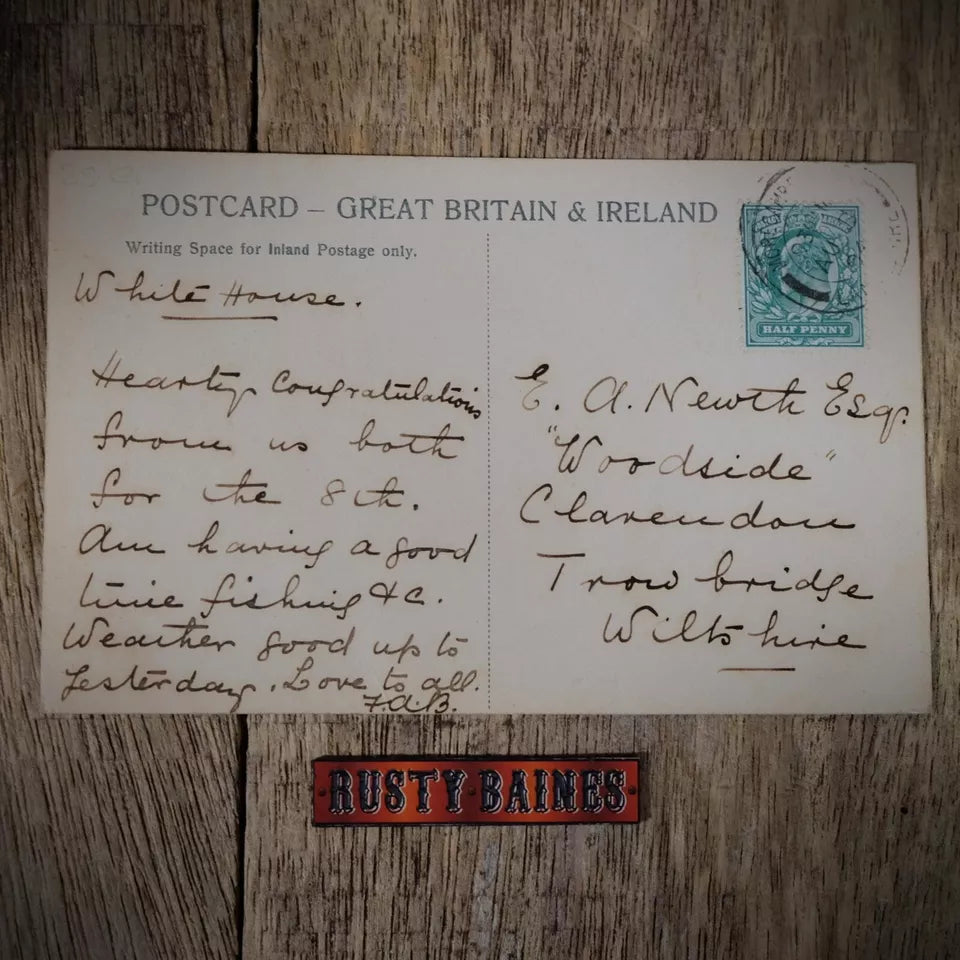 POSTCARD – GREAT BRITAIN & IRELAND
Writing Space for Inland Postage only.
White House.
Hearty Congratulations
from us both
for the 8th.
Am having a good
time fishing &c.
Weather good up to
Yesterday. Love to all.
F.A.B.
HALF PENNY
E. A. Newth Esqr.
"Woodside"
Clarendon
Trowbridge
Wiltshire
RUSTY BAINES